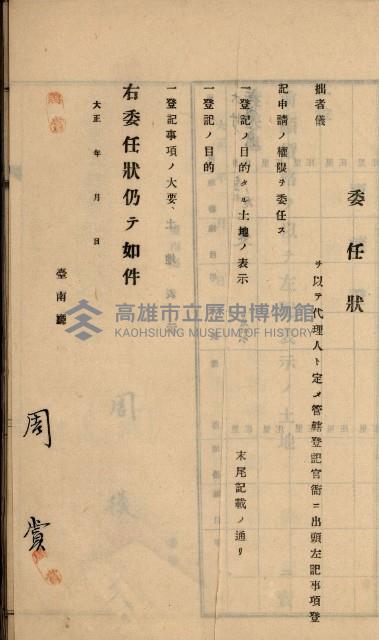 委任狀
拙者儀　　　ヲ以テ代理人ト定メ管轄登記官衙ニ出頭左記事項登
記申請ノ權限ヲ委任ス
一登記ノ目的タル土地ノ表示　末尾記載ノ通リ
一登記ノ目的
一登記事項ノ大要、
右委任狀仍テ如件
大正　年　月　日
臺南廳
周　賞
高雄市立歷史博物館
KAOHSIUNG MUSEUM OF HISTORY